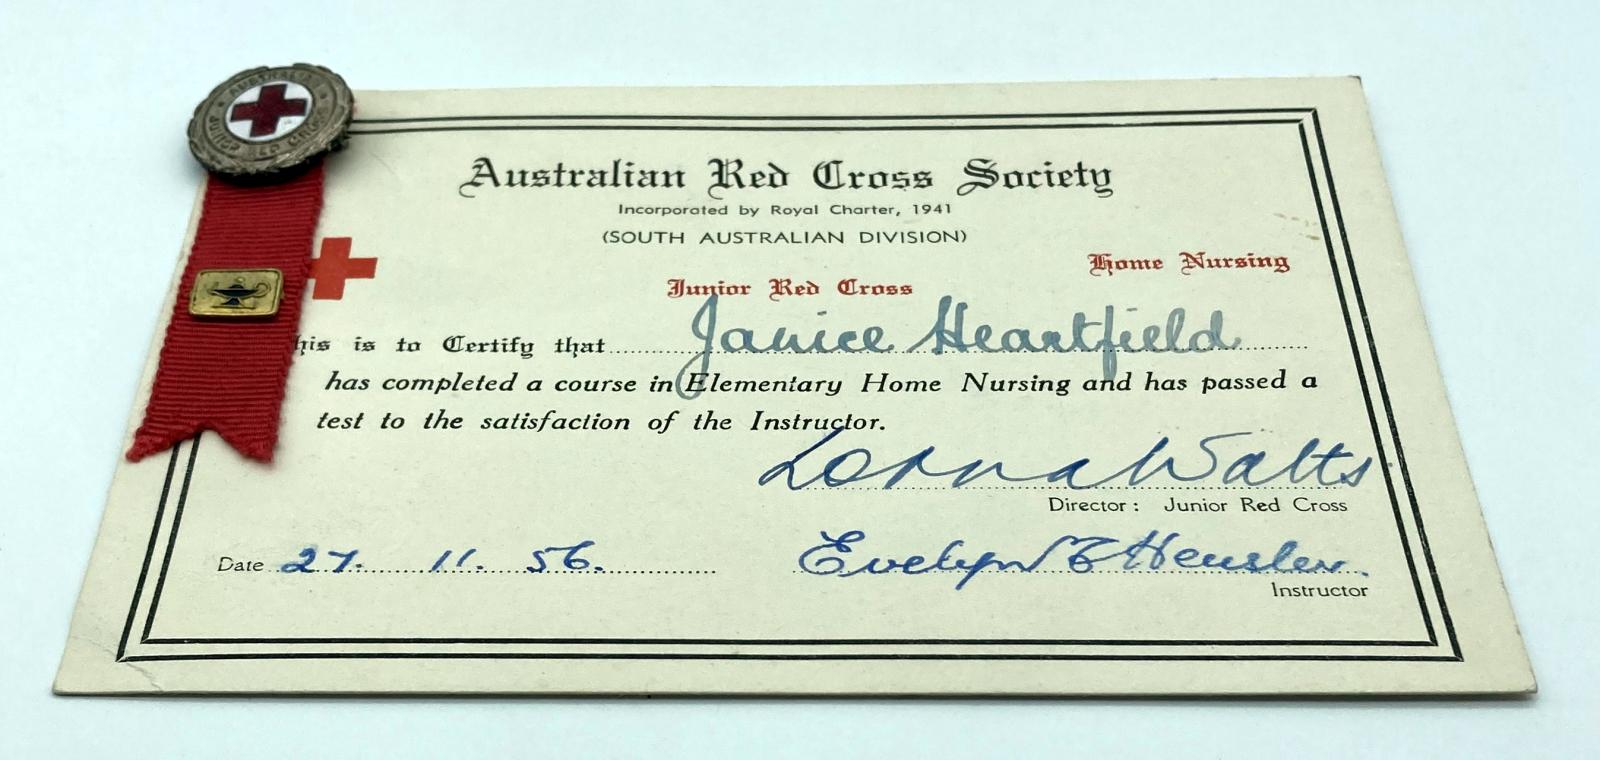 AUSTRALIAN
JUNIOR RED CROSS
Australian Red Cross Society
Incorporated by Royal Charter, 1941
(SOUTH AUSTRALIAN DIVISION)
Home Nursing
Junior Red Cross
his is to Certify that Janice Heartfield
has completed a course in Elementary Home Nursing and has passed a
test to the satisfaction of the Instructor.
Lorna Watts
Director: Junior Red Cross
Date 27. 11. 56.
Evelyn Hensley
Instructor